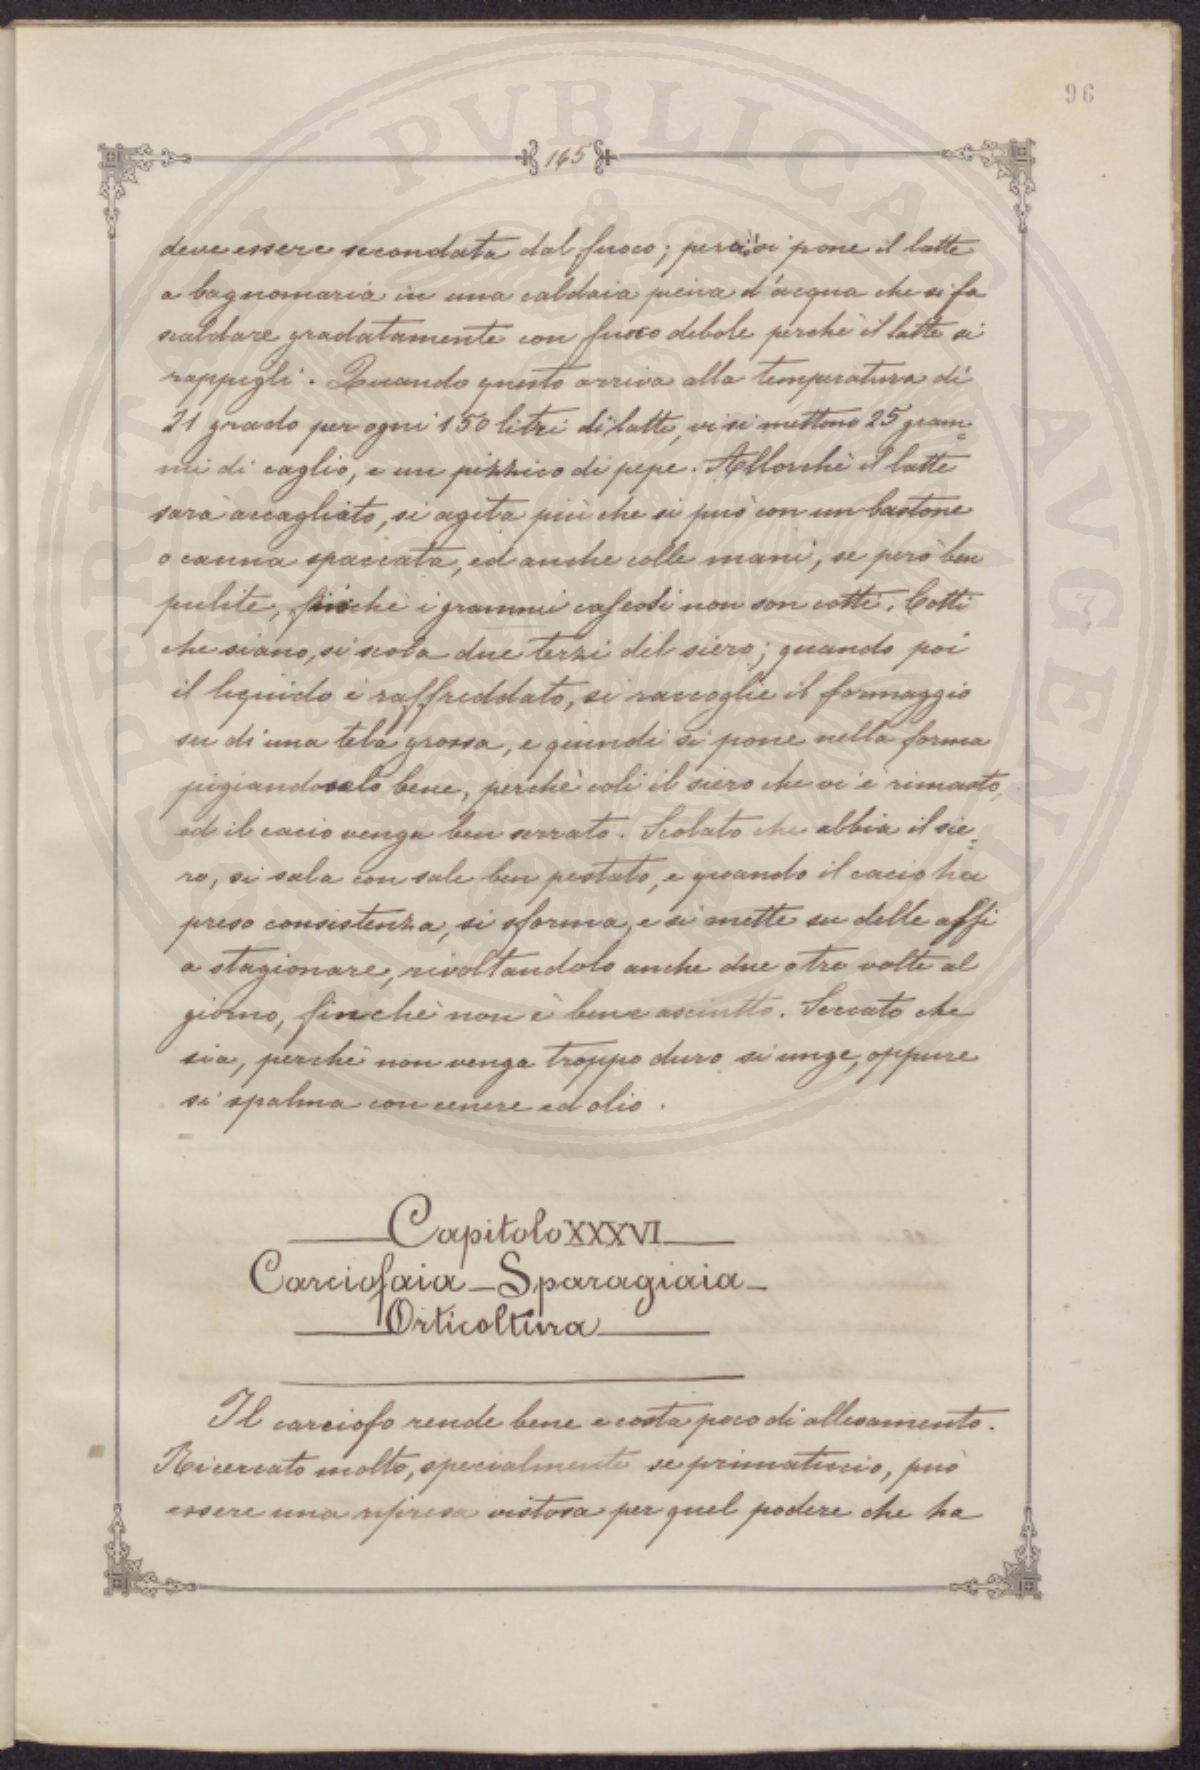 96
165
deve essere secondata dal fuoco; perciò si pone il latte
a bagnomaria in una caldaia piena d'acqua che si fa
scaldare gradatamente con fuoco debole perchè il latte si
rappigli. Quando questo arriva alla temperatura di
21 grado per ogni 150 litri di latte, vi si mettono 25 gram=
mi di caglio, e un pizzico di pepe. Allorchè il latte
sarà accagliato, si agita più che si può con un bastone
o canna spaccata, ed anche colle mani, se però ben
pulite, finchè i grammi caseosi non son cotti. Cotti
che siano, si scola due terzi del siero; quando poi
il liquido è raffreddato, si raccoglie il formaggio
su di una tela grossa, e quindi si pone nella forma
pigiandovelo bene, perchè coli il siero che vi è rimasto,
ed il cacio venga ben serrato. Scolato che abbia il sie=
ro, si sala con sale ben pestato, e quando il cacio ha
preso consistenza, si sforma, e si mette su delle assi
a stagionare, rivoltandolo anche due o tre volte al
giorno, finchè non è bene asciutto. Seccato che
sia, perchè non venga troppo duro si unge, oppure
si spalma con cenere ed olio.
Capitolo XXXVI
Carciofaia – Sparagiaia –
Orticoltura
Il carciofo rende bene e costa poco di allevamento.
Ricercato molto, specialmente se primaticcio, può
essere una ripresa vistosa per quel podere che ha